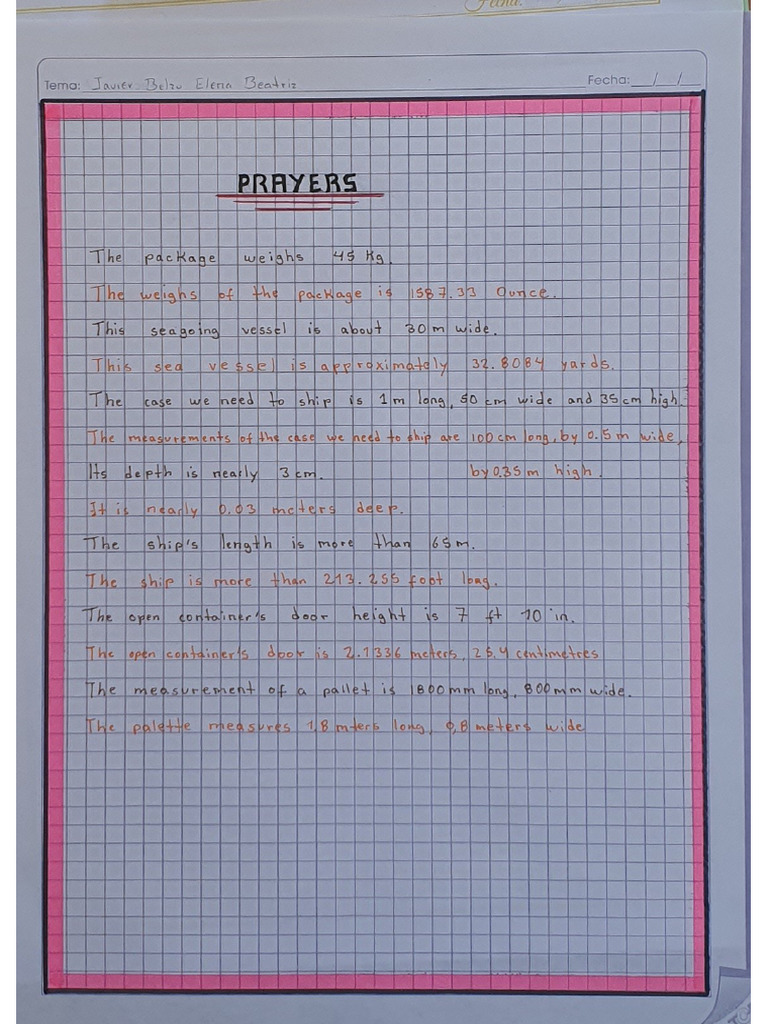 Fecha:
Tema: Javier Belzu Elena Beatriz Fecha: __/__/__
PRAYERS
The package weighs 45 Kg.
The weighs of the package is 1587.33 Ounce.
This seagoing vessel is about 30 m wide.
This sea vessel is approximately 32.8084 yards.
The case we need to ship is 1m long, 50 cm wide and 35 cm high.
The measurements of the case we need to ship are 100 cm long, by 0.5 m wide,
by 0.35 m high.
Its depth is nearly 3 cm.
It is nearly 0.03 meters deep.
The ship's length is more than 65m.
The ship is more than 213.255 foot long.
The open container's door height is 7 ft 10 in.
The open container's door is 2.1336 meters, 25.4 centimetres
The measurement of a pallet is 1800mm long, 800mm wide.
The palette measures 1,8 mters long, 0,8 meters wide